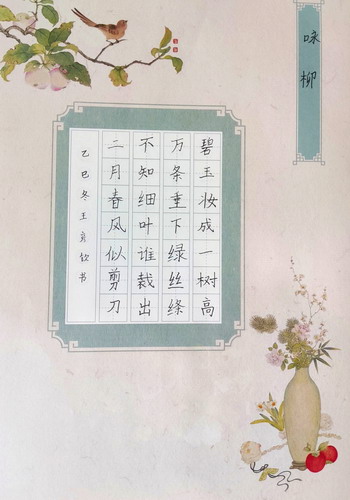 咏柳
碧玉妆成一树高
万条垂下绿丝绦
不知细叶谁裁出
二月春风似剪刀
乙巳冬王育钦书